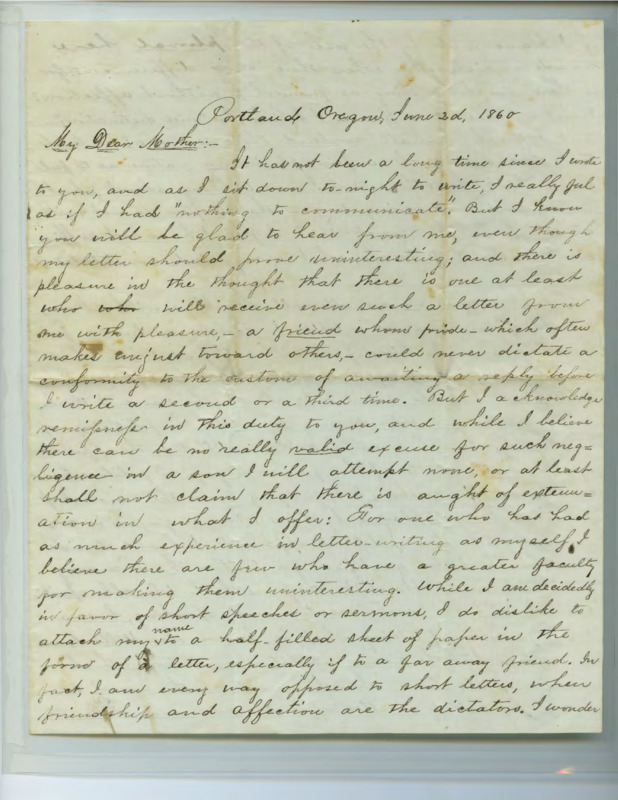 Portland, Oregon, June 2d, 1860
My Dear Mother:-
It has not been a long time since I wrote
to you, and as I sit down to-night to write, I really feel
as if I had "nothing to communicate". But I know
you will be glad to hear from me, even though
my letter should prove uninteresting; and there is
pleasure in the thought that there is one at least
who who will receive even such a letter from
me with pleasure,- a friend whom pride- which often
makes unjust toward others,- could never dictate a
conformity to the custom of awaiting a reply before
I write a second or a third time. But I acknowledge
remissness in this duty to you, and while I believe
there can be no really valid excuse for such neg=
ligence in a son I will attempt none, or at least
shall not claim that there is aught of extenu=
ation in what I offer: For one who has had
as much experience in letter-writing as myself, I
believe there are few who have a greater faculty
for making them uninteresting. While I am decidedly
in favor of short speeches or sermons, I do dislike to
attach my name to a half-filled sheet of paper in the
form of a letter, especially if to a far away friend. In
fact, I am every way opposed to short letters, when
friendship and affection are the dictators. I wonder